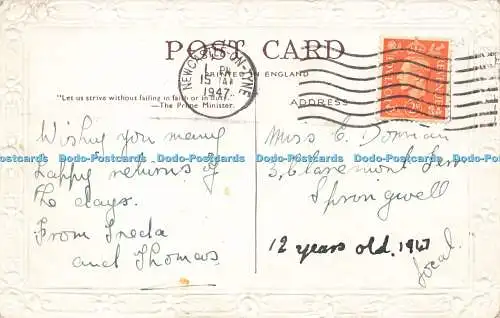 POST CARD
PRINTED IN ENGLAND
NEWCASTLE-ON-TYNE
1 PM
15 JAN
1947
"Let us strive without failing in faith or in duty"
—The Prime Minister.
ADDRESS
Wishing you many
happy returns of
the days.
From Freda
and Thomas
Miss E.
3, Claremont Terr
Springwell
12 years old. 1947
local.
Dodo-Postcards Dodo-Postcards Dodo-Postcards Dodo-Postcards Dodo-Postcards